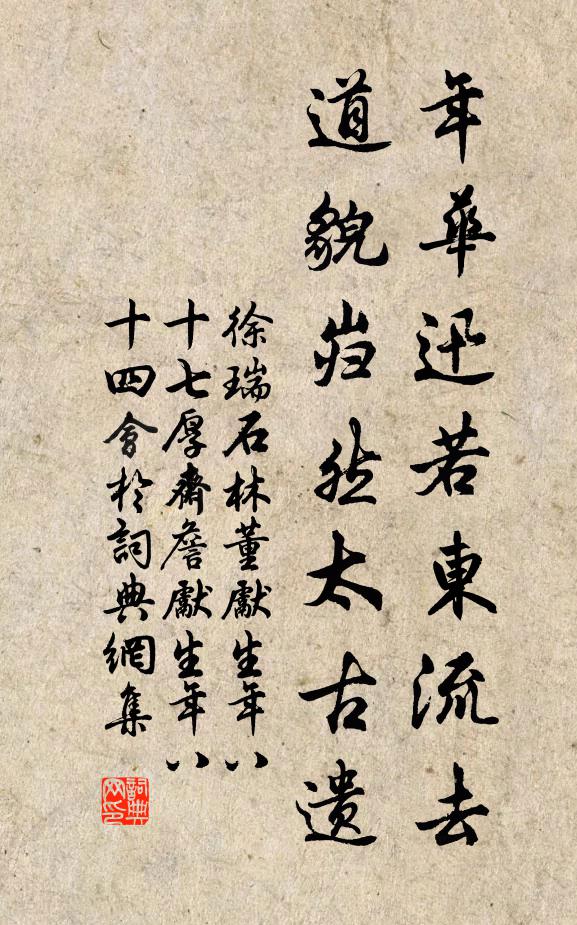 年華迅若東流去
道貌岿然太古遺
徐瑞石林董獻生年八
十七厚齋詹獻生年八
十四會於詞典網集
詞典网印